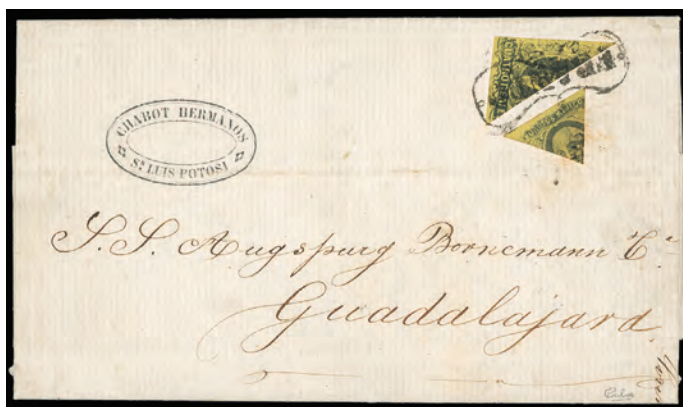 CHABOT HERMANOS
Sn LUIS POTOSI
S.S. Augspurg Bornemann Ca
Guadalajara